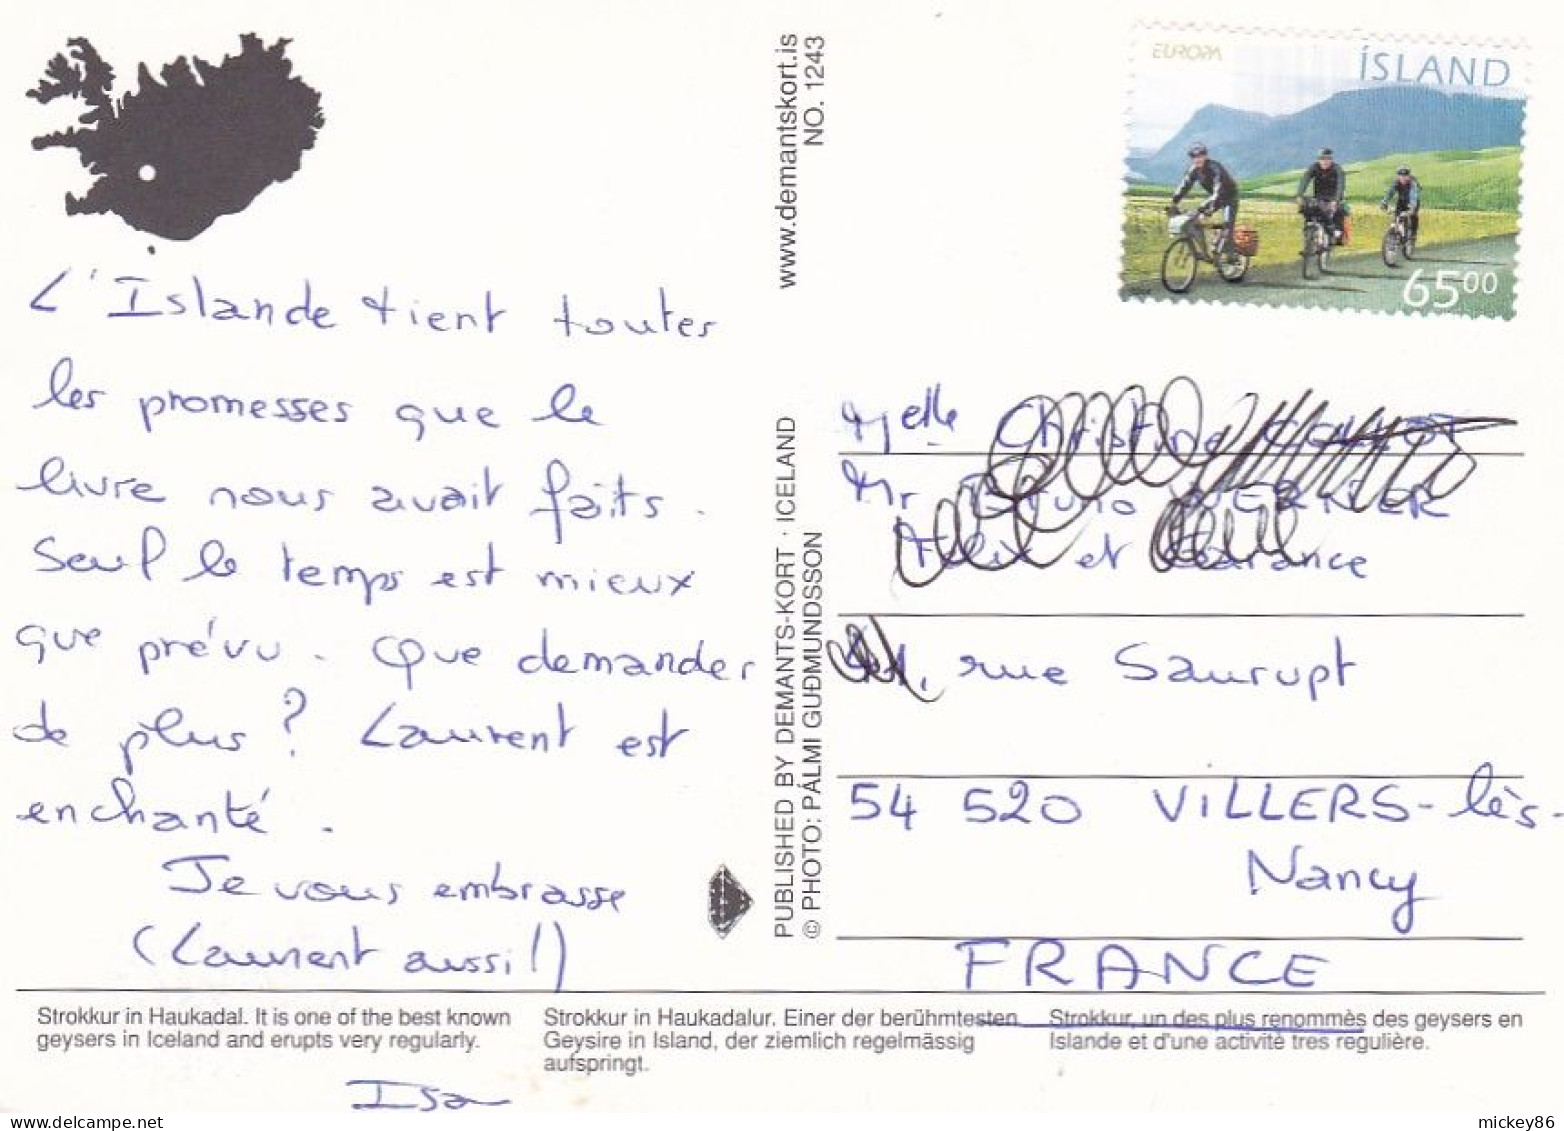 EUROPA
ÍSLAND
6500
www.demantskort.is
NO. 1243
L'Islande tient toutes
les promesses que le
livre nous avait faits.
Seul le temps est mieux
que prévu. Que demander
de plus? Laurent est
enchanté.
Je vous embrasse
(Laurent aussi!)
PUBLISHED BY DEMANTS-KORT · ICELAND
© PHOTO: PÁLMI GUÐMUNDSSON
Melle
Mr
et
rue Saurupt
54 520 VILLERS-lès-
Nancy
FRANCE
Strokkur in Haukadal. It is one of the best known
geysers in Iceland and erupts very regularly.
Strokkur in Haukadalur. Einer der berühmtesten
Geysire in Island, der ziemlich regelmässig
aufspringt.
Strokkur, un des plus renommès des geysers en
Islande et d'une activitè tres regulière.
Isa
mickey86